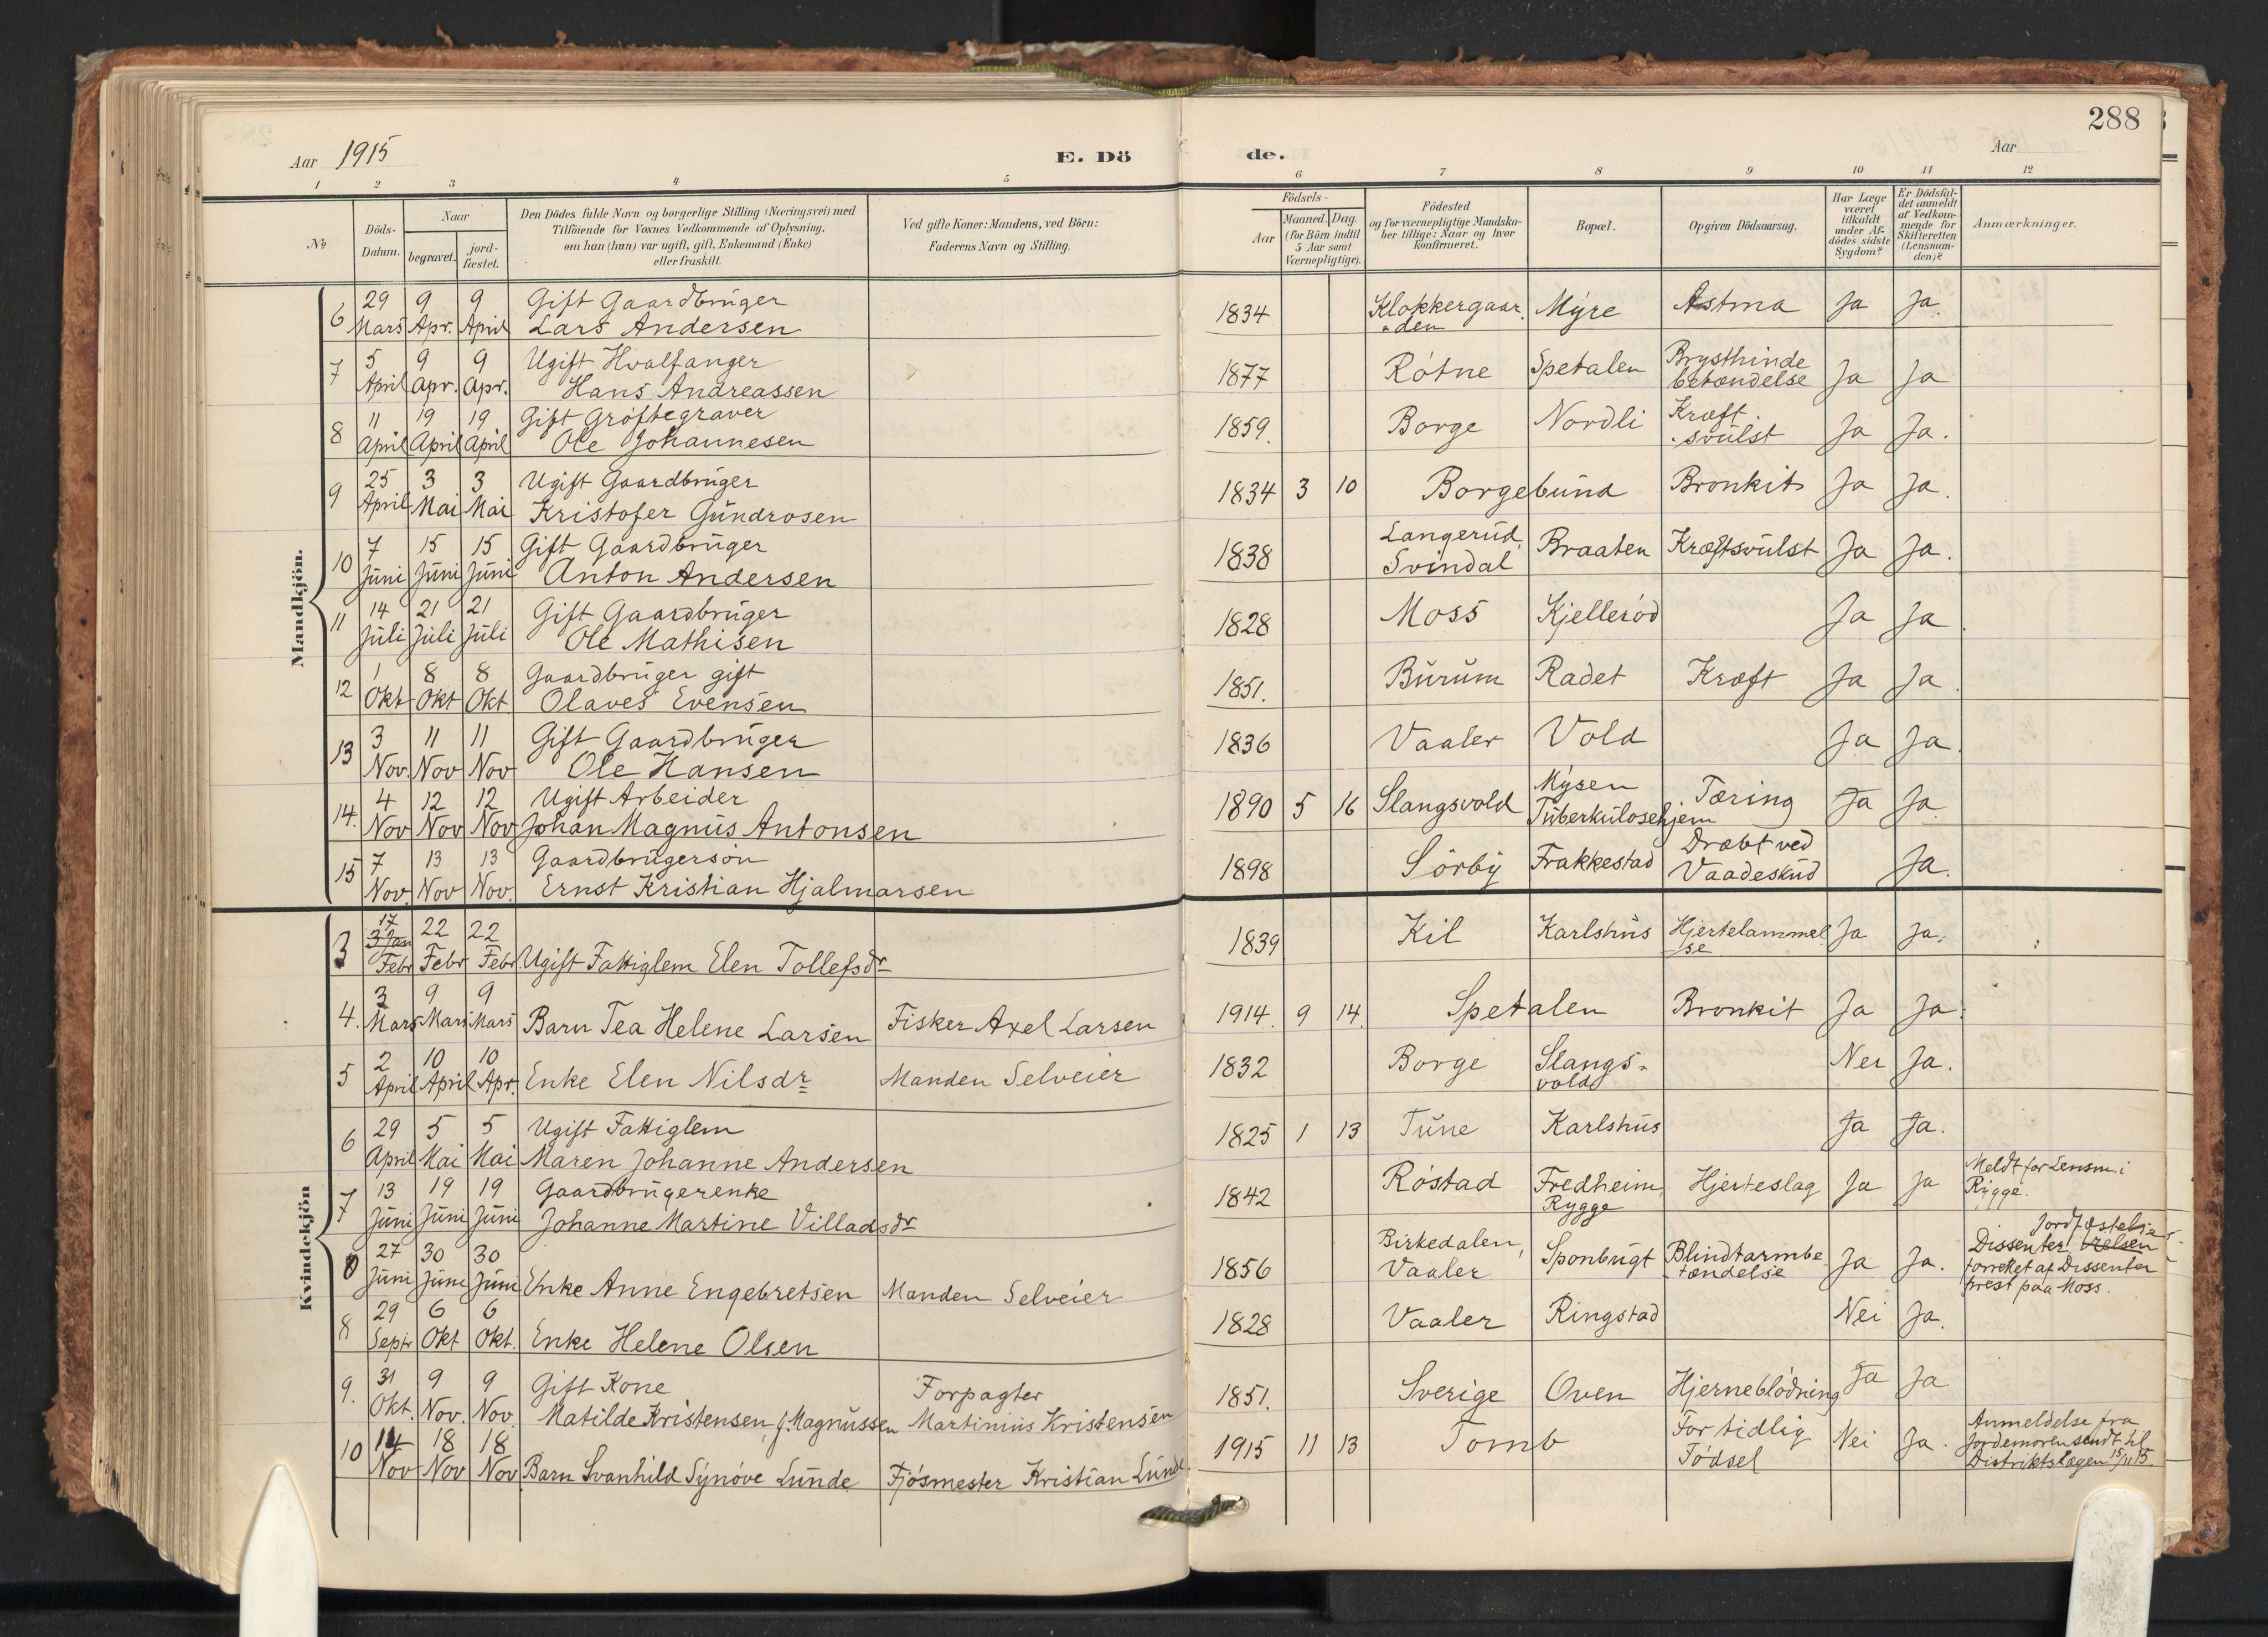 288
Aar 1915
E. Dö
de.
Aar
1 2 3 4 5 6 7 8 9 10 11 12
№
Döds-Datum.
Naar
begravet.
jord-fæstet.
Den Dödes fulde Navn og borgerlige Stilling (Næringsvei) med
Tilföiende for Voxnes Vedkommende af Oplysning,
om han (hun) var ugift, gift, Enkemand (Enke)
eller fraskilt.
Ved gifte Koner: Mandens, ved Börn:
Faderens Navn og Stilling.
Födsels-
Aar
Maaned. Dag.
(for Börn indtil
5 Aar samt
Værnepligtige).
Födested
og for værnepligtige Mandska-
ber tillige: Naar og hvor
konfirmeret.
Bopæl.
Opgiven Dödsaarsag.
Har Læge
været
tilkaldt
under Af-
dödes sidste
Sygdom?
Er Dödsfal-
det anmeldt
af Vedkom-
mende for
Skifteretten
(Lensman-
den)?
Anmærkninger.
Mandkjön.
6 29 Mars 9 Apr. 9 April Gift Gaardbruger
Lars Andersen 1834 Klokkergaar.
den Myre Astma Ja Ja.
7 5 April 9 Apr. 9 Apr. Ugift Hvalfanger
Hans Andreassen 1877 Rótne Spetalen Brysthinde
betændelse Ja Ja
8 11 April 19 April 19 April Gift Gróftegraver
Ole Johannesen 1859. Borge Nordli Kræft.
svulst Ja Ja.
9 25 April 3 Mai 3 Mai Ugift Gaardbruger
Kristofer Gundrosen 1834 3 10 Borgebund Bronkit Ja Ja.
10 7 Juni 15 Juni 15 Juni Gift Gaardbruger
Anton Andersen 1838 Langerud,
Svindal Braaten Kræftsvulst Ja Ja.
11 14 Juli 21 Juli 21 Juli Gift Gaardbruger
Ole Mathisen 1828 Moss Kjelleród Ja Ja.
12 1 Okt 8 Okt 8 Okt. Gaardbruger gift
Olaves Evensen 1851. Burum Radet Kræft Ja Ja.
13 3 Nov. 11 Nov 11 Nov Gift Gaardbruger
Ole Hansen 1836 Vaaler Vold Ja Ja.
14. 4 Nov 12 Nov 12 Nov Ugift Arbeider
Johan Magnus Antonsen 1890 5 16 Slangsvold Mysen
Tuberkulosehjem Tæring Ja Ja.
15 7 Nov. 13 Nov 13 Nov. Gaardbrugersón
Ernst Kristian Hjalmarsen 1898 Sórby Frakkestad Dræbt ved
Vaadeskud Ja.
Kvindekjön
3 17 3 Jan Febr 22 Febr 22 Febr Ugift Fattiglem Elen Tollefsdr 1839 Kil Karlshus Hjertelammel
se Ja Ja.
4. 3 Mars 9 Mars 9 Mars Barn Tea Helene Larsen Fisker Axel Larsen 1914. 9 14. Spetalen Bronkit Ja Ja.
5 2 April 10 April 10 Apr. Enke Elen Nilsdr Manden Selveier 1832 Borge Slangs-
vold Nei Ja.
6 29 April 5 Mai 5 Mai Ugift Fattiglem
Maren Johanne Andersen 1825 1 13 Tune Karlshus Ja Ja.
7 13 Juni 19 Juni 19 Juni Gaardbrugerenke
Johanne Martine Villadsdr 1842 Róstad Fredheim,
Rygge Hjerteslag Ja Ja Meldt for Lensm. i
Rygge.
27 Juni 30 Juni 30 Juni Enke Anne Engebretsen Manden Selveier 1856 Birkedalen,
Vaaler Sponbugt Blindtarmbe
tændelse Ja Ja. Jordfæstelse
Dissenter
forrettet af Dissenter
prest paa Moss.
8 29 Septr 6 Okt 6 Okt. Enke Helene Olsen 1828 Vaaler Ringstad Nei Ja.
9. 31 Okt. 9 Nov. 9 Nov. Gift Kone
Matilde Kristensen, f. Magnussen Forpagter
Martinius Kristensen 1851. Sverige Oven Hjerneblódning Ja Ja
10 14 Nov 18 Nov 18 Nov Barn Svanhild Synóve Lunde Fjósmester Kristian Lunde 1915 11 13 Tomb For tidlig
Fódsel Nei Ja. Anmeldelse fra
Jordemoren sendt til
Distriktslægen 15/11 15.